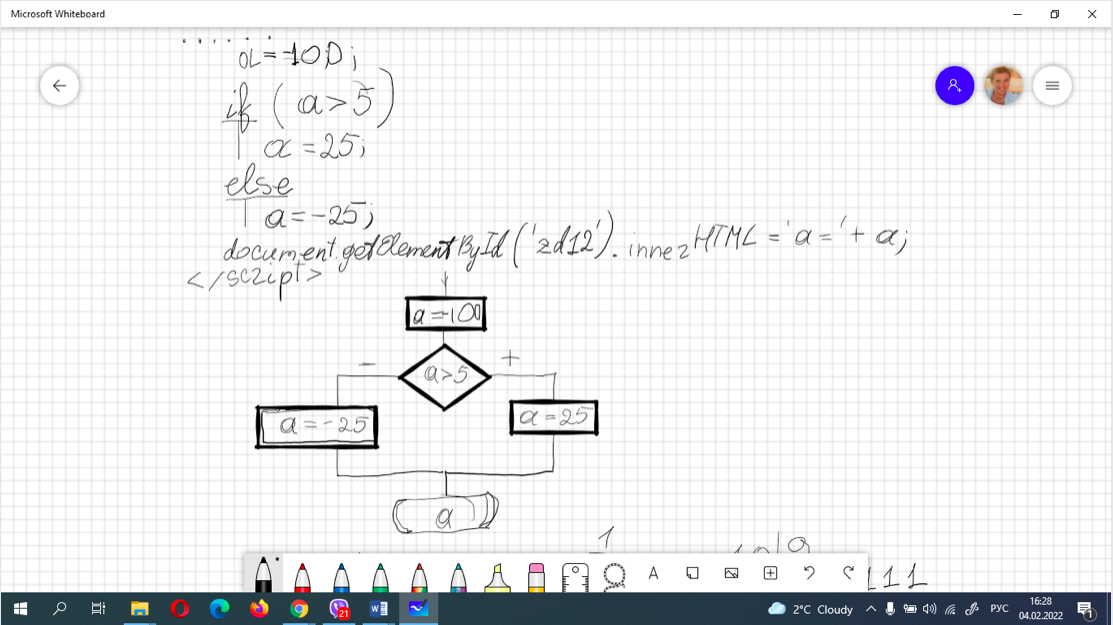 Microsoft Whiteboard
a=-100;
if (a>5)
a=25;
else
a=-25;
document.getElementById('zd12').innerHTML='a='+a;
</script>
a=-100
a>5
-
+
a=-25
a=25
a
1
111
A
21
2°C Cloudy
РУС
16:28
04.02.2022
1